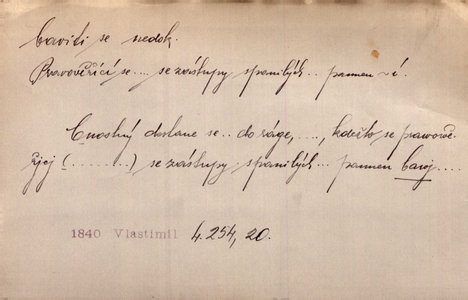 baviti se nedok.
Pravověřící se.... se zástupy spanilých.. panen ~ í.
Cnostný dostane se.. do ráge, ...., kdežto se prawowě-
řjcj (........) se zástupy spanilých... panen bawj....
1840 Vlastimil 4.254, 20.